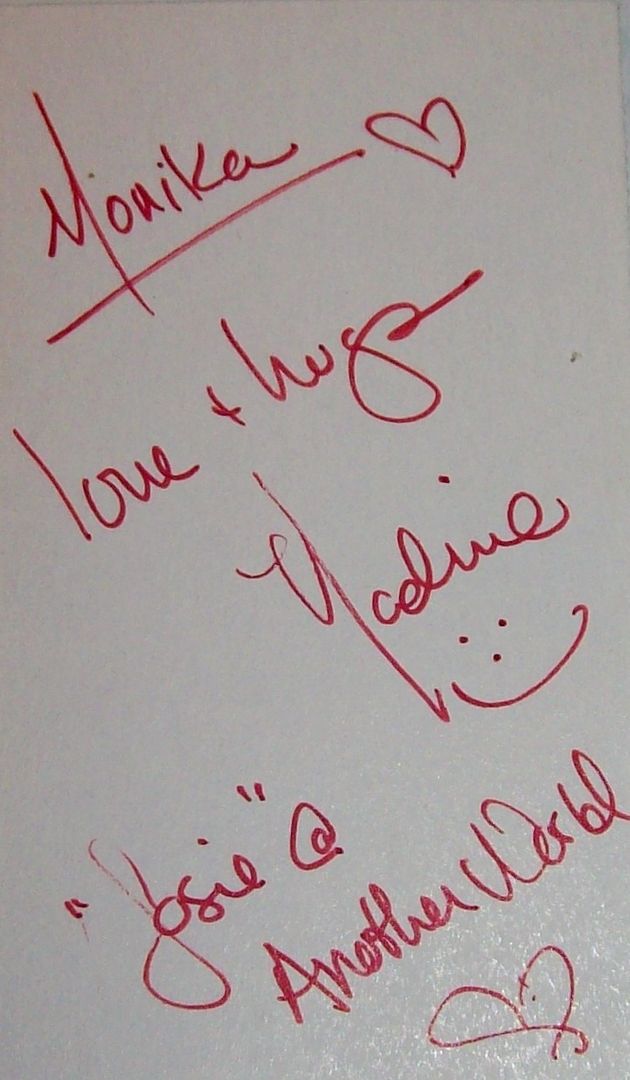 Monika
love + hugs
Nadine
"Josie" @
Another World